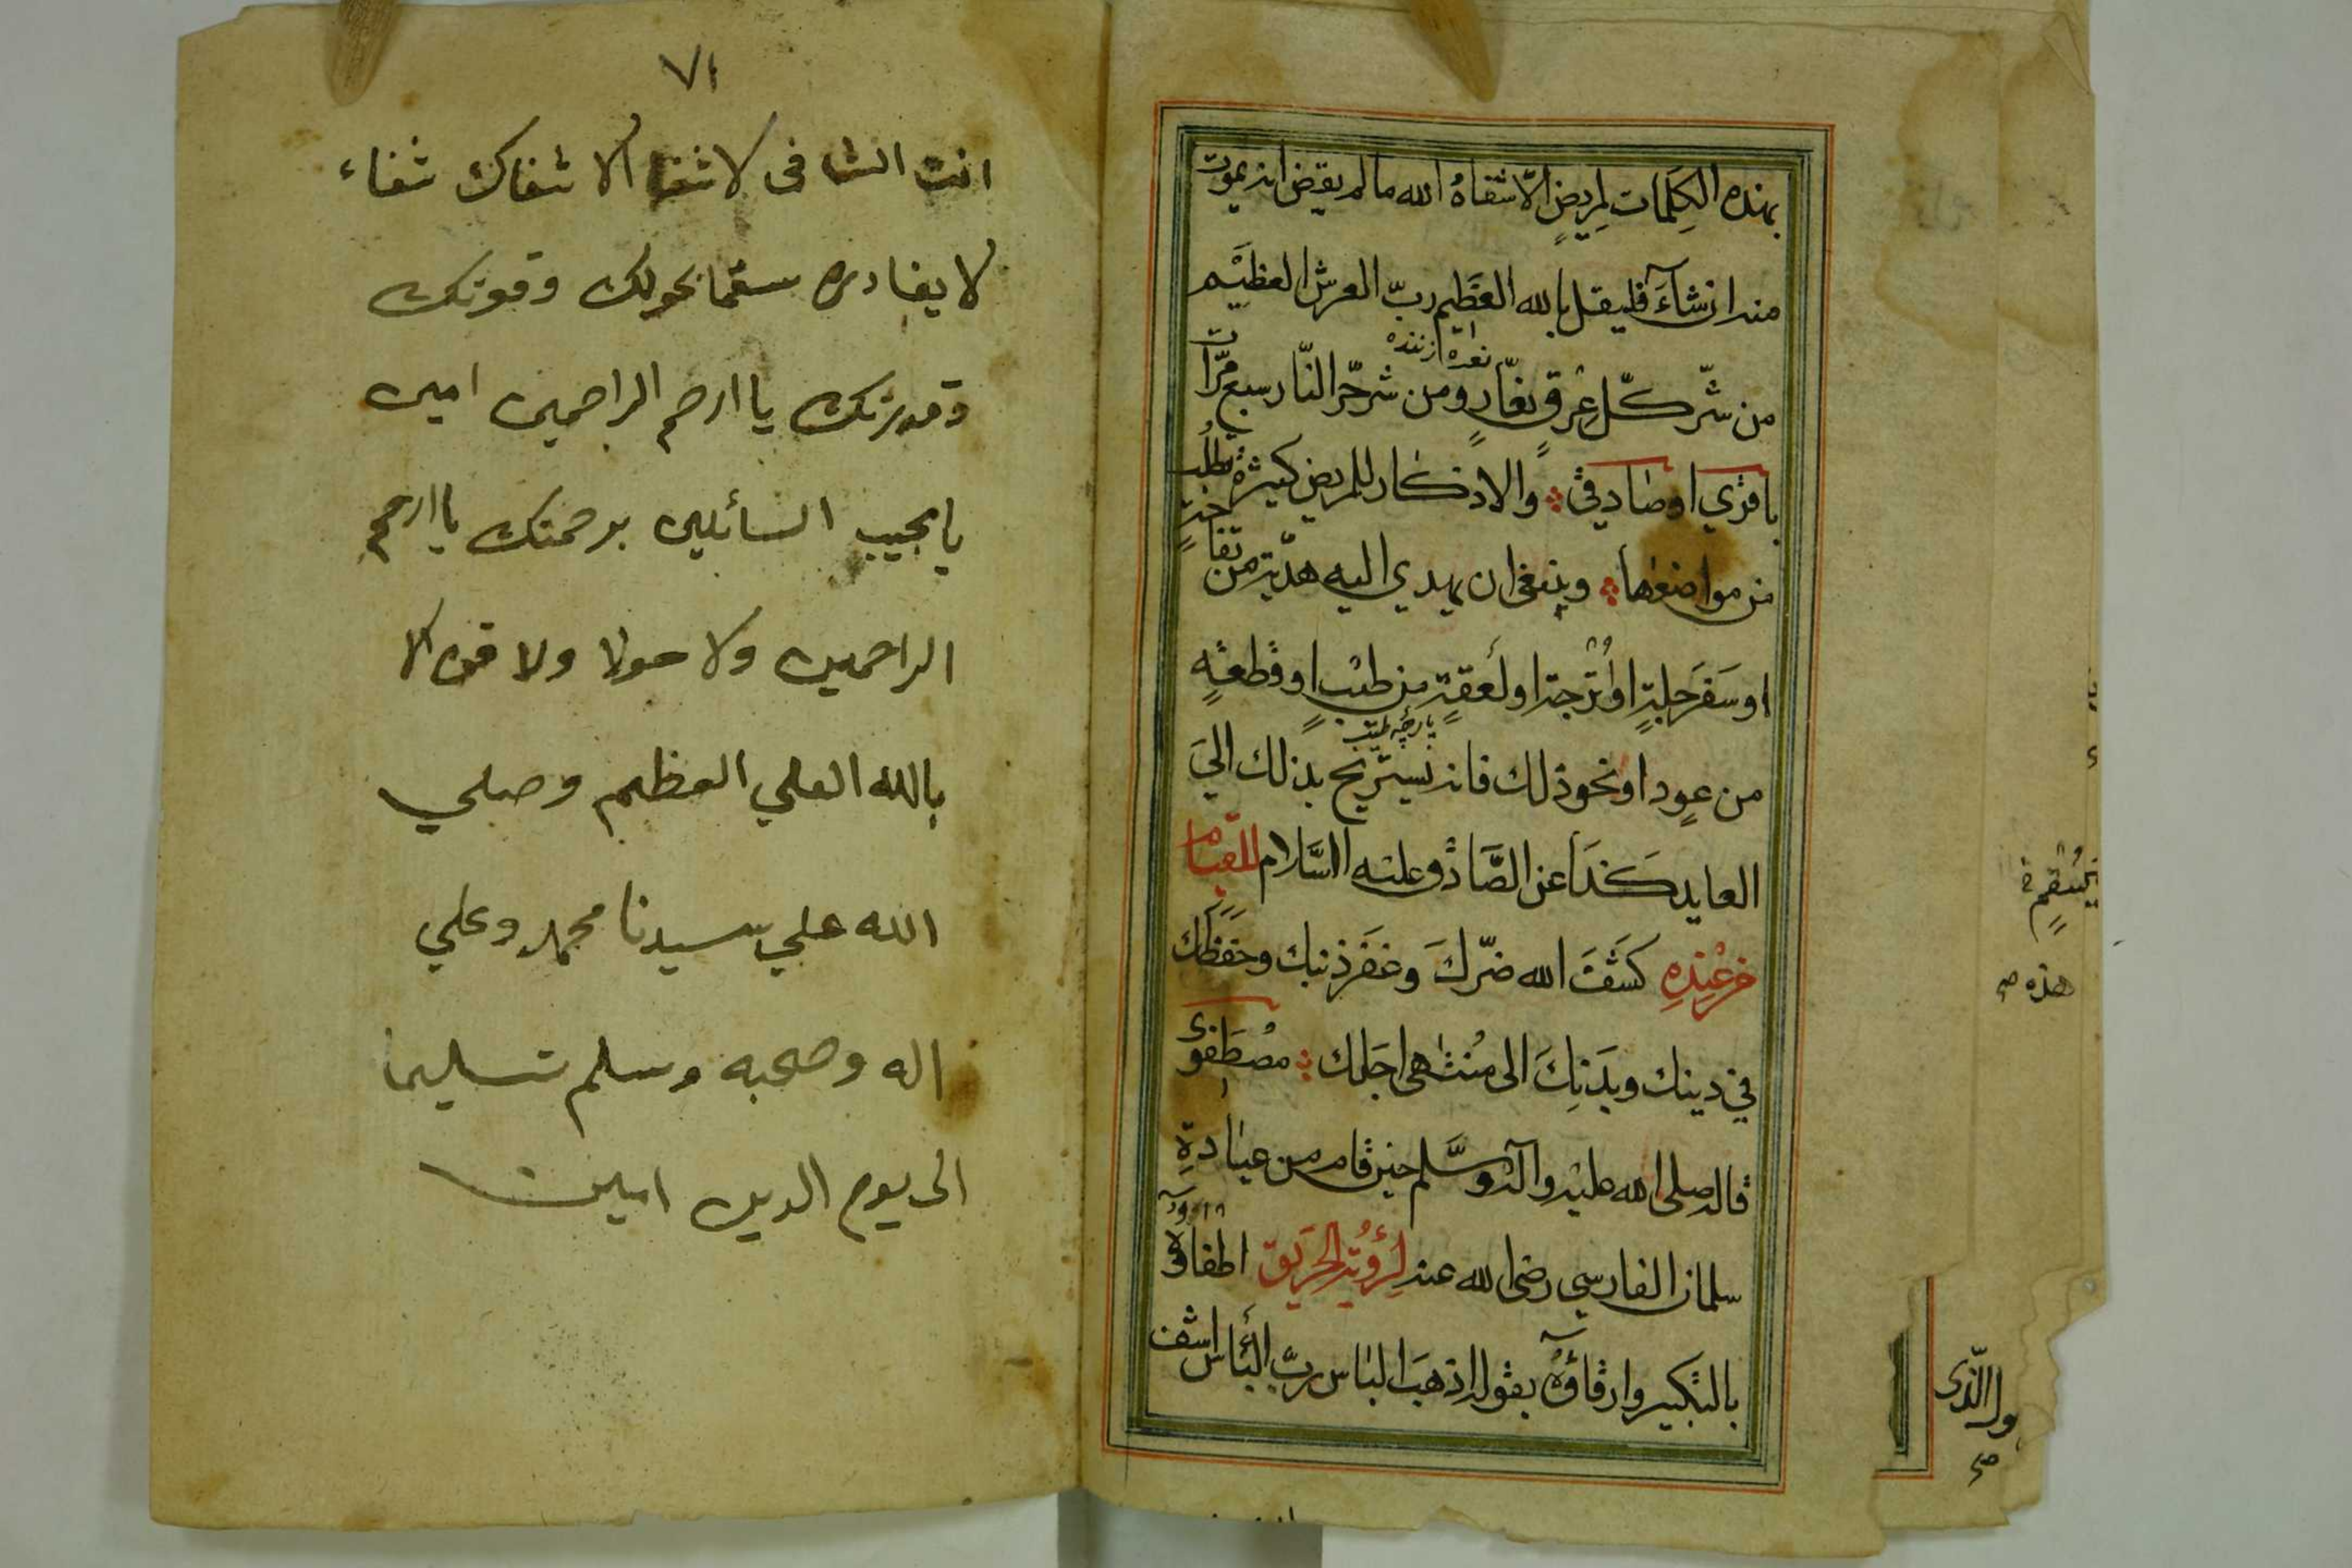 بهذه الكِلَمات لِمريضٍ الّا شفاهُ الله ما لم يقض انه يموت
منه ان شآءَ فليقل بالله العَظيم ربّ العرش العظيم
نعره ازننده
من شّر كلّ عِرْقٍ نعّارٍ ومن شر حّر النّار سبع مرّات
باقري او صادقي والاذكار للمريض كثيرة تطلب
من مواضعها وينبغي ان يهدي اليه هديّة من تفّاحةٍ
او سَفَرجلةٍ او اُتْرجة او لَعقةٍ من طيْبٍ او قطعةٍ
پارچه طيب
من عودٍ او نحو ذلك فانه يستريح بذلك اليَ
العايد كَذا عن الصَّادق عليه السَّلام للقيام
من عِنْدِهِ كَشَفَ الله ضّركَ وغفَر ذنبك وحفظك
في دينك وبدَنِكَ الى مُنْتهى اجَلك مُصْطَفوى
قاله صلى الله عليه وآله وسَّلم حين قام من عيادةِ
سلمان الفارسي رضي الله عنه لِرُؤْيَةِ الحَريق اطفاؤه
بالتكبير وارقاؤهُ بقوله اذهبَ البَاس ربّ البَأس اشف
يَسْقم
هذه صح
ول الذّى
صح
٧١
انت الشافى لا شفا الا شفاك شفاء
لا يغادره سقما بحولك وقوتك
وقدرتك يا ارحم الراحمين امين
يا مجيب السائلين برحمتك يا ارحم
الراحمين ولا حولا ولا قوه الا
بالله العلي العظيم وصلي
الله علي سيدنا محمد وعلي
اله وصحبه وسلم تسليما
الى يوم الدين امين